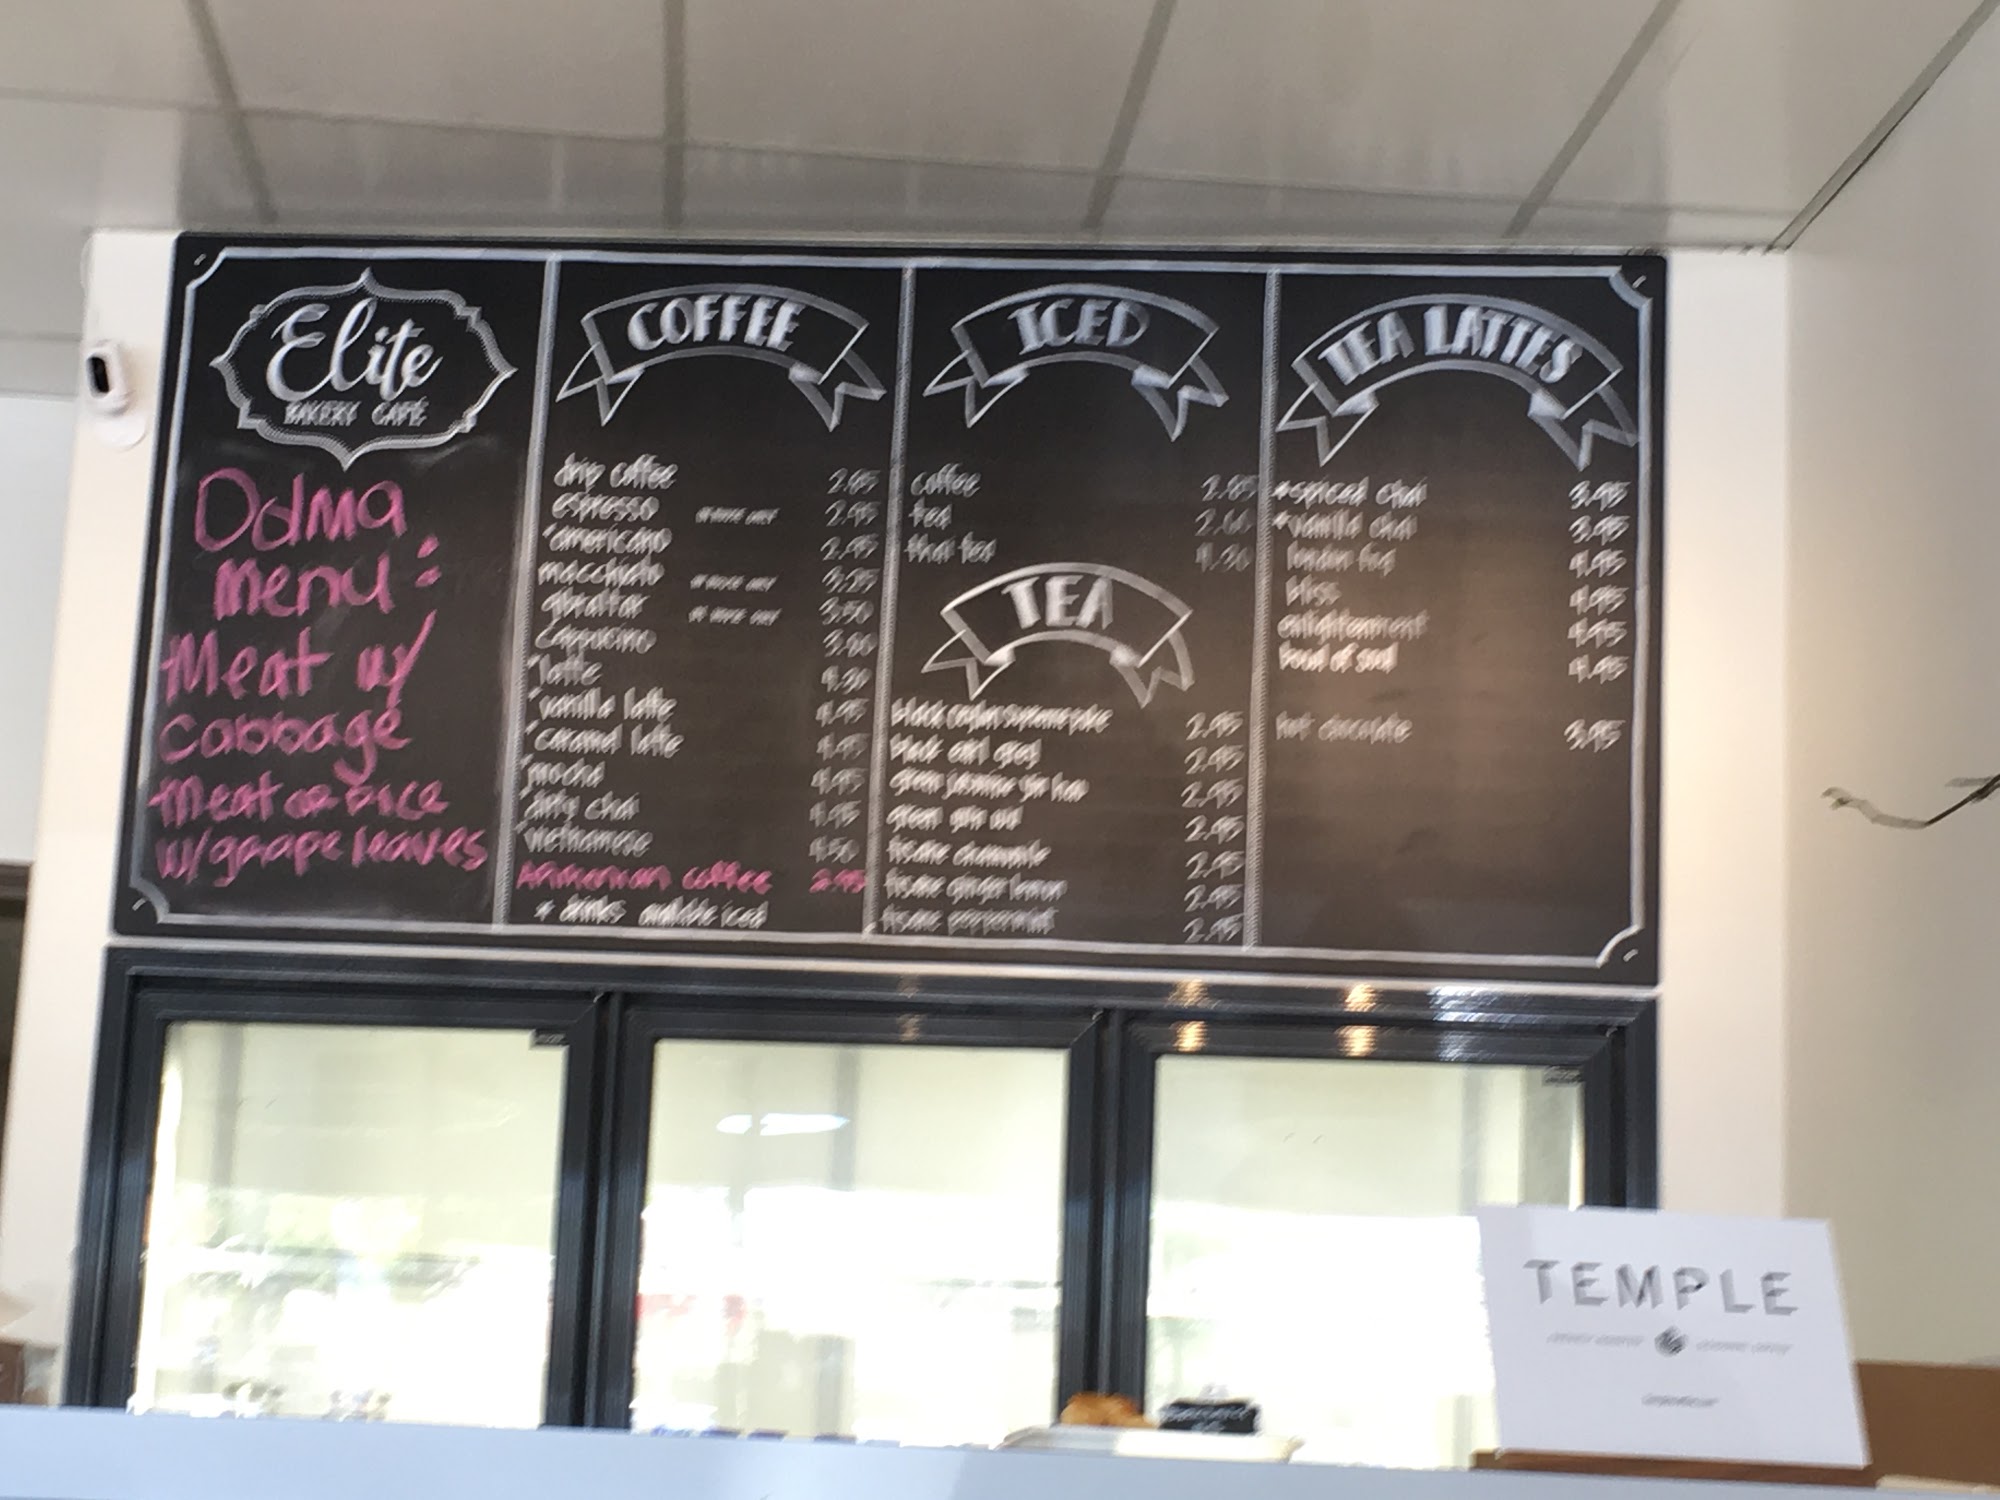 Elite
BAKERY CAFÉ
Odma
menu:
Meat w/
Cabbage
Meat or rice
w/grape leaves
COFFEE
drip coffee 2.85
espresso 2.95
*americano 2.95
macchiato 3.25
gibraltar 3.50
cappucino 3.80
*latte 4.30
*vanilla latte 4.95
*caramel latte 4.95
*mocha 4.95
dirty chai 4.95
*vietnamese 4.50
Armenian coffee 2.95
* drinks available iced
ICED
coffee 2.85
tea 2.60
thai tea 4.30
TEA
black 2.95
black earl grey 2.95
green jasmine yin hao 2.95
green 2.95
tisane chamomile 2.95
tisane ginger lemon 2.95
tisane peppermint 2.95
TEA LATTES
*spiced chai 3.95
*vanilla chai 3.95
london fog 4.95
bliss 4.95
enlightenment 4.95
bowl of soul 4.95
hot chocolate 3.95
TEMPLE